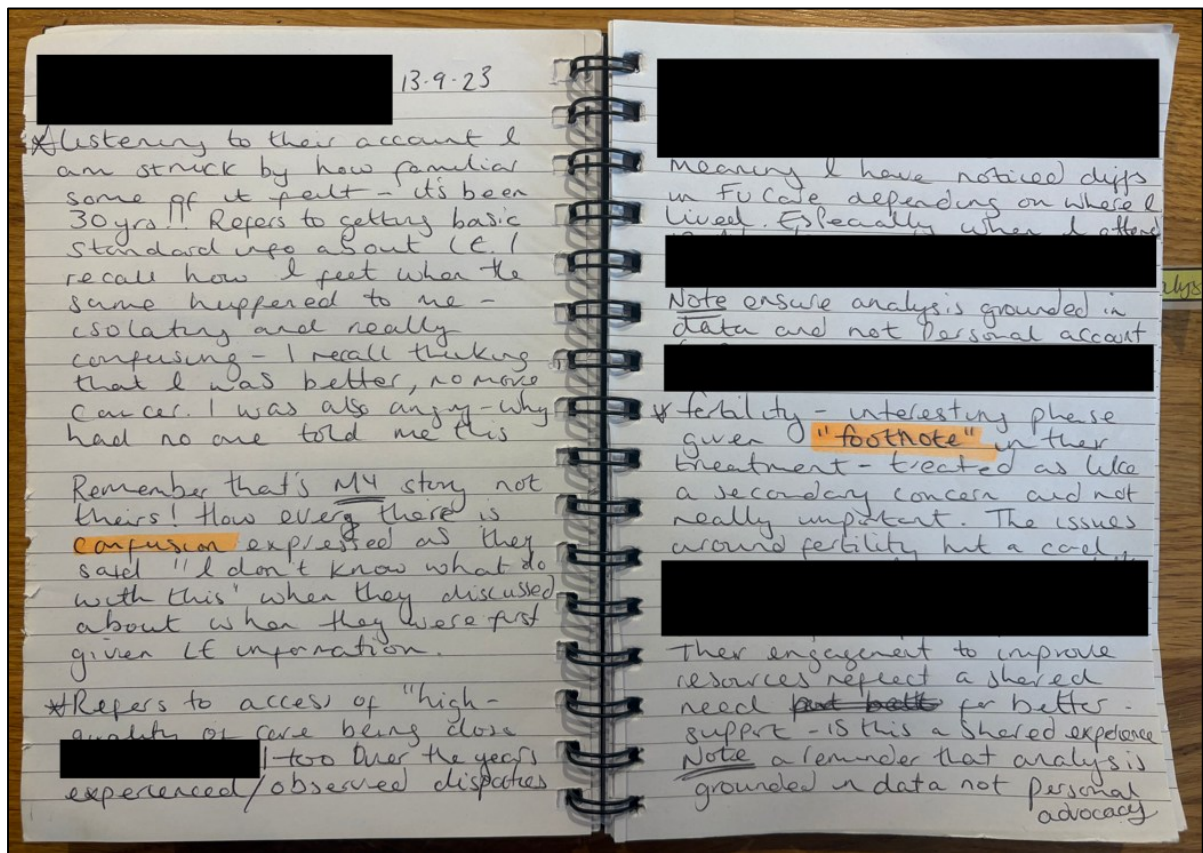 13.9.23
* Listening to their account I
am struck by how familiar
some of it felt - it's been
30 yrs!! Refers to getting basic
standard info about LE. I
recall how I felt when the
same happened to me -
isolating and really
confusing - I recall thinking
that I was better, no more
cancer. I was also angry - why
had no one told me this
Remember that's MY story not
theirs! How every there is
confusion expressed as they
said "I don't know what do
with this" when they discussed
about when they were first
given LE information.
* Refers to access of "high-
quality of care being close
I too Over the years
experienced/observed dispaties
Meaning I have noticed diffs
in FU Care depending on where I
lived. Especially when I attend
Note ensure analysis grounded in
data and not personal account
* fertility - interesting phase
given "footnote" in their
treatment - treated as like
a secondary concern and not
really important. The issues
around fertility hit a
Ther engagement to improve
resources reflect a shared
need for better -
support - is this a shared experience
Note a reminder that analysis is
grounded in data not personal
advocacy
lys